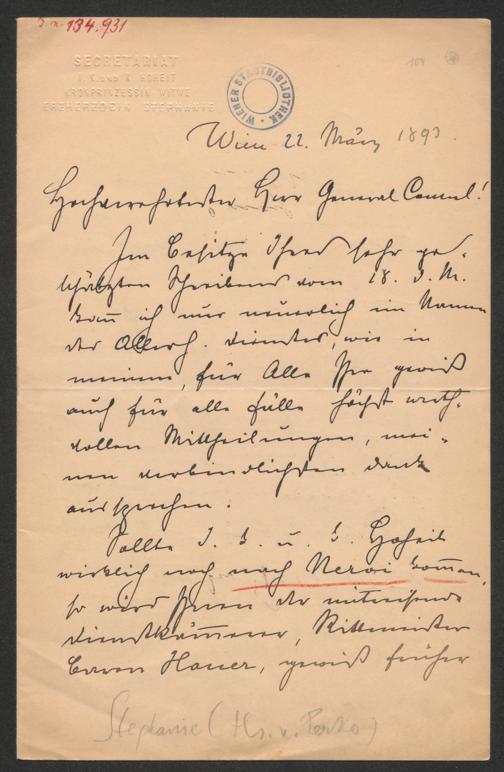 J. N. 134.931
SECRETARIAT
I. K. UND K. HOHEIT
KRONPRINZESSIN WITWE
ERZHERZOGIN STEPHANIE
WIENER STADTBIBLIOTHEK
Wien 22. März 1893.
Hochverehrtester Herr General Consul!
Im Besitze Ihres sehr ge-
schätzten Schreibens vom 18. d. M.
kann ich nur neuerlich im Namen
des Allerh. Dienstes, wie in
meinem, für Alle Ihre gewiß
auch für alle Fälle höchst werth-
vollen Mittheilungen, mei-
nen verbindlichsten Dank
aussprechen.
Sollte I. k. u. k. Hoheit
wirklich noch nach Nervi kommen,
so wird Ihnen der mitreisende
Dienstkämmerer, Rittmeister
Baron Hauer, gewiß früher
Stephanie (Hs. v. )